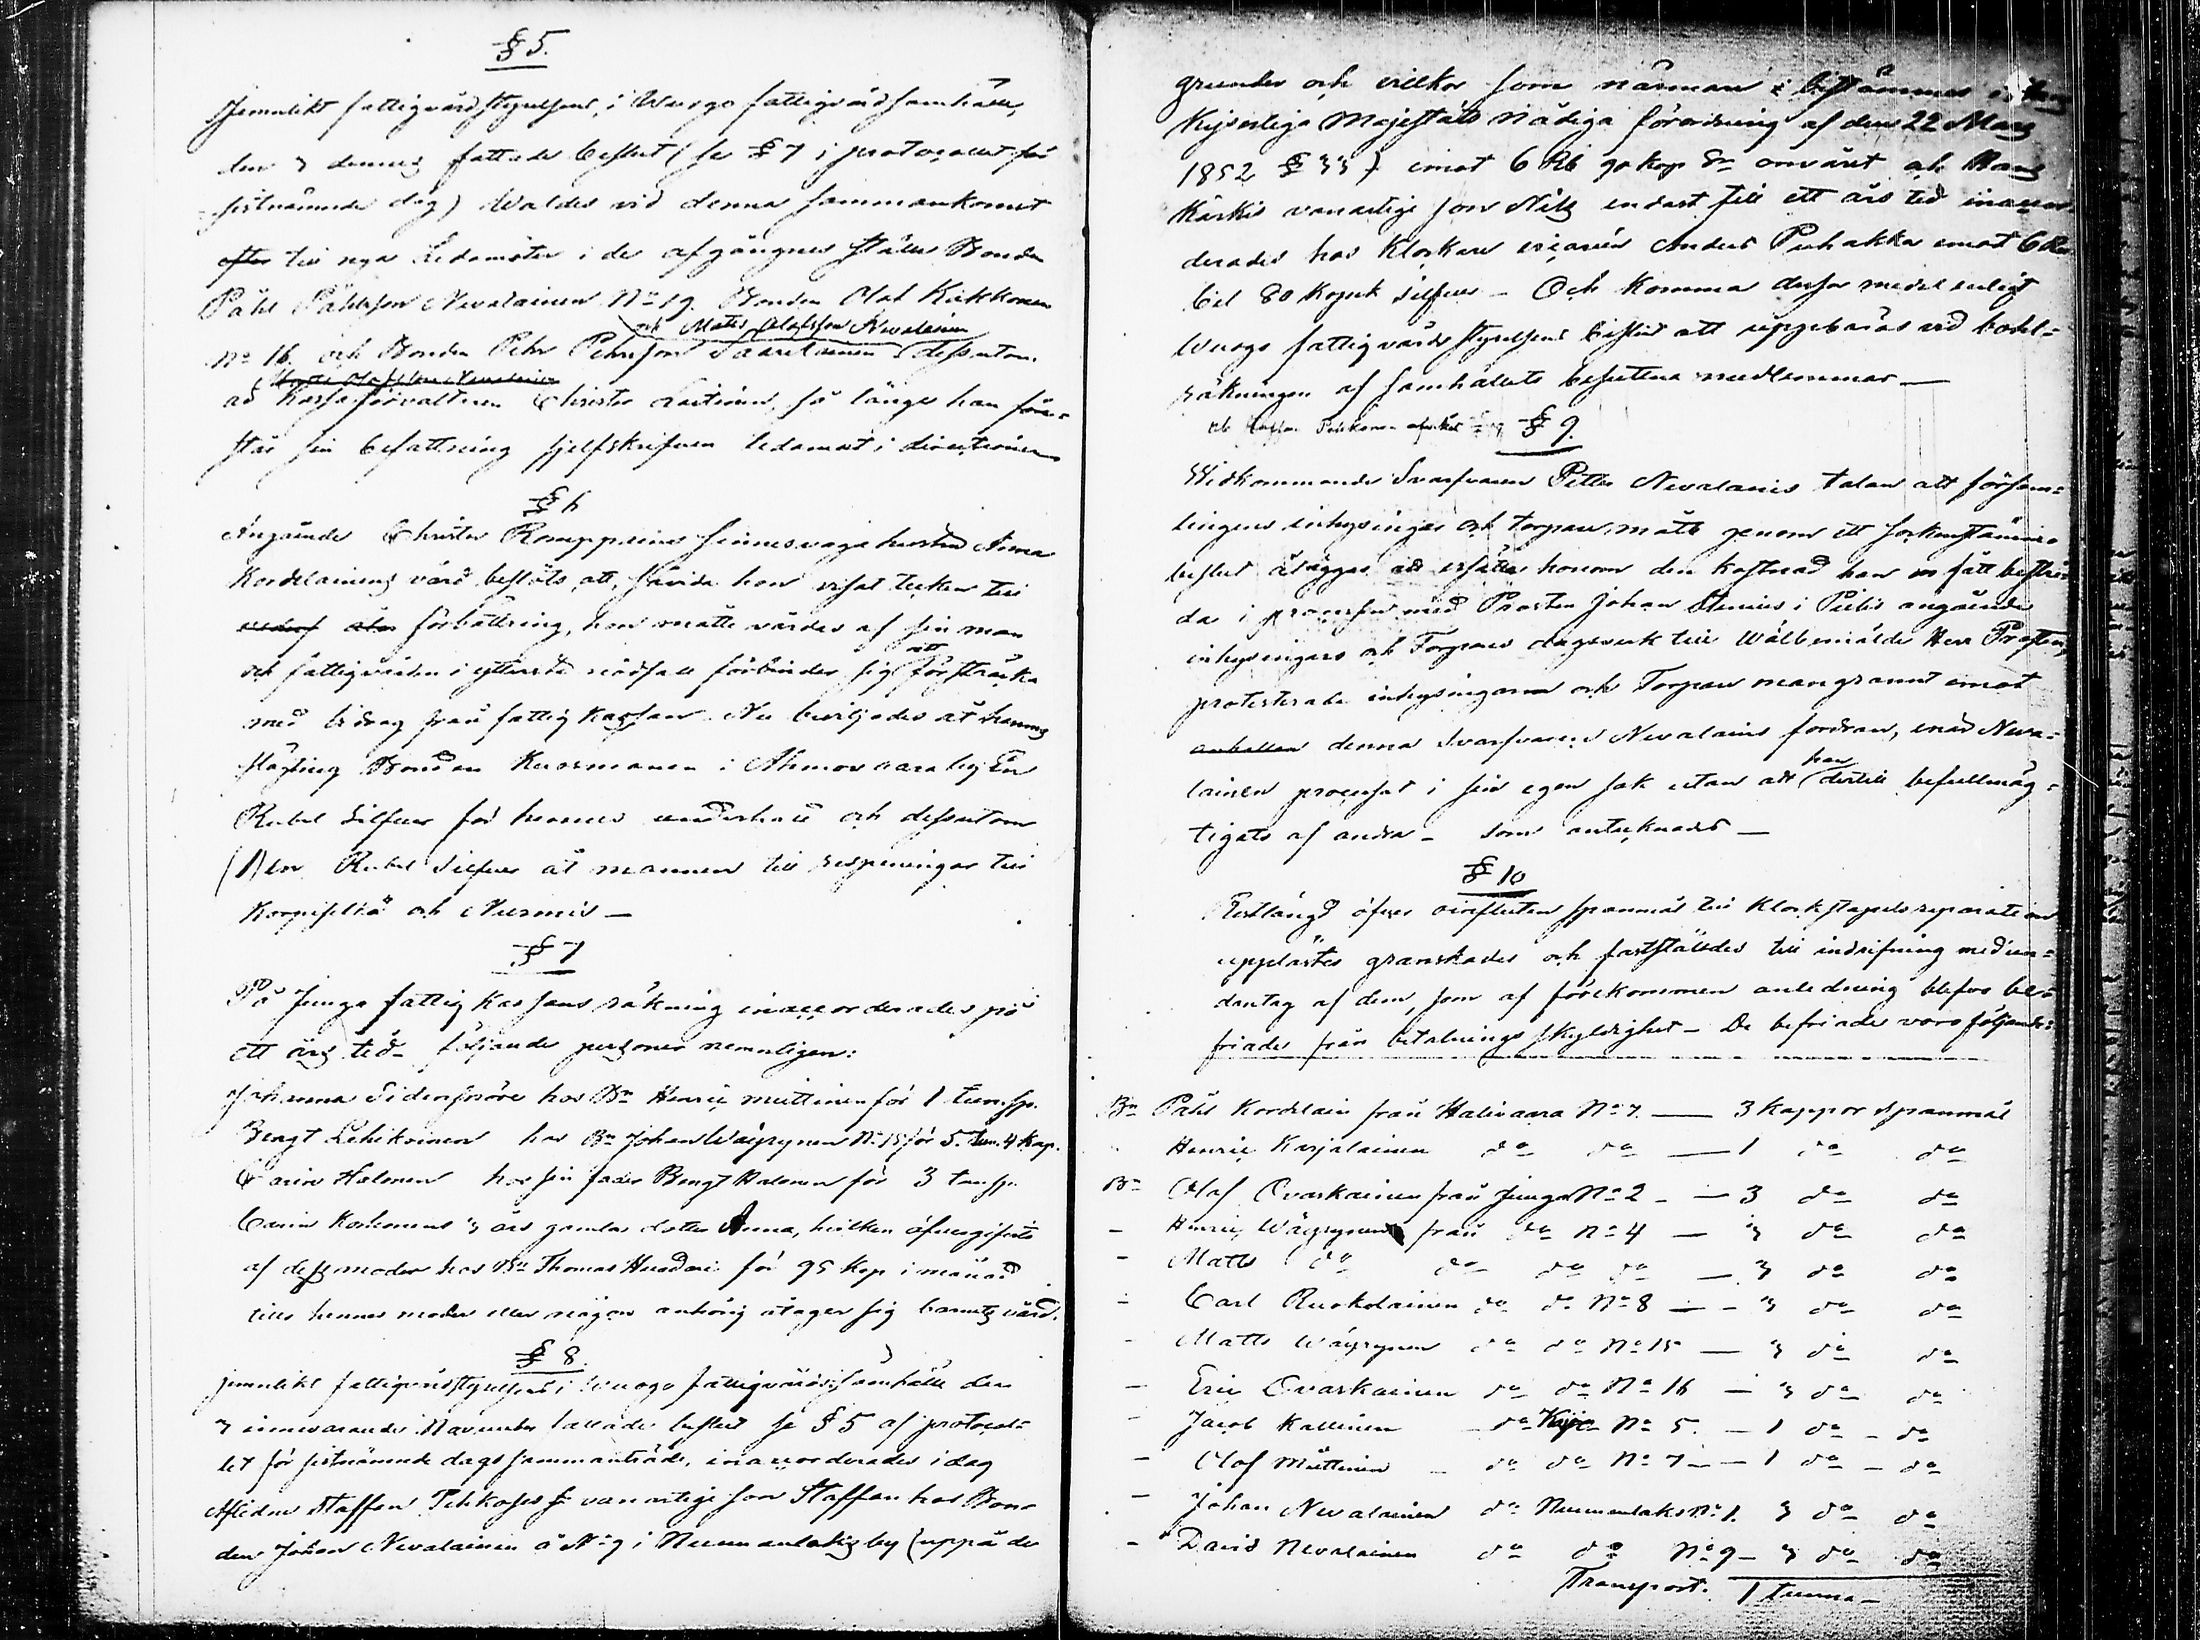 § 5.
Jemnlikt fattigvårdsstyrelsens i Wuogo fattigvårdsamhälle,
den 3 dennes fattade beslut (se § 7 i protocollet för
sistnämnde dag) Waldes vid denna sammankomst
efter till nya Ledamöter i de afgångnes ställe Bonden
Påhl Påhlsson Nevalainen No 19. Bonden Olof Kirkkonen
och Matts Olofsson Nevalainen
No 16. och Bonden Pehr Pehrsson Saarelainen dessutom
Matts Olofsson Nevalainen
är Kassaförvaltaren Christer så länge han före-
står sin befattning sjelfskrifven ledamot i directionen
§ 6
Angående Christer Romppainens sinnesvaga hustru Anna
Kordelainens vård beslöts, att, såvida hon visat tecken till
förbättring, hon måtte vårdas af sin man
att
och fattigvården i yttersta nödfall förbinder sig försträcka
med bidrag från fattig Kassan. Nu beviljades åt hennes
slägting Bonden Kuosmanen i Ahmovaara by En
Rubel Silfver för hennes underhåll och dessutom
(1) en Rubel Silfver åt mannen till respenningar till
Korpiselkä och Nurmis —
§ 7
På Juuga fattig Kassans räkning inaccorderades på
ett års tid följande personer nemnligen:
Johanna Sidensnöre hos Bn Henric Müttinen för 1 tun. sp.
Bengt Lehikoinen hos Bn Johan Wäyrynen No 15 för 5. Tun. 4 Kap.
Carin Halonen hos sin fader Bengt Halonen för 3 tun sp.
Carin Korhonens 3 års gamla dotter Anna, hvilken öfvergifvits
af dess moder hos Bn Thomas för 95 Kop i månad
tills hennes moder eller någon anhörig åtager sig barnets vård.
§ 8.
jemnlikt fattigvårdsstyrelsens i Wuogo fattigvårdssamhälle den
3 innevarande November fattade beslut se § 5 af protocol-
let för sistnämnde dags sammanträde, inaccorderades i dag
Aflidne Staffan vanartige son Staffan hos Bon-
den Johan Nevalainen å No 9 i Nunnanlaks by (uppå de
grunder och villkor som närmare bestämmes i Hans
Kejserliga Majestäts nådiga förordning af den 22 Mars
1852 § 33) emot 6 Rb 90 kop Sr om året och Hans
Kärkis vanartige son Nils endast till ett års tid inaccor-
derades hos Klockare vicarien Anders Puhakka emot 6 Ru-
bel 80 Kopek silfver — Och komma dessa medel enligt
Wuogo fattigvårds styrelsens beslut att uppebäras vid bohl-
räkningen af samhällets besuttna medlemmar —
§ 9.
Widkommande Svarsvaren Petter Nevalainens talan att försam-
lingens inhysingar och torpare måtte genom ett sockenstämmo-
beslut åläggas att ersätta honom den kostnad han fått bestri-
da i processen med Prosten Johan Stenius i Pielis angående
inhysingars och Torpares dagsverk till Wälbemälde Herr Prosten,
protesterade inhysingarne och Torpare mangrannt emot
anhållan denna Svarsvaren Nevalainens fordran, enär Neva-
han
lainen processat i sin egen sak utan att dertill befullmäg-
tigats af andra — som antecknades —
§ 10
Restlängd öfver oinfluten spannmål till Klockstapels reparation
upplästes granskades och fastställdes till indrifning med un-
dantag af dem, som af förekommen anledning blefvo be-
friade från betalnings skyldighet — De befriade voro följande:
Bn Påhl Kordelain från Halivaara No 7. — 3 Kappor Spannmål
Henric Karjalainen do do — 1 do do
Bn Olof Ovaskainen från Juuga No 2 — 3 do do
- Henric Wäyrynen från do No 4 — 3 do do
- Matts do do do do — 3 do do
- Carl Ruokolainen do do No 8 — 3 do do
- Matts Wäyrynen do do No 15 — 3 do do
- Eric Ovaskainen do do No 16 — 3 do do
- Jacob Kallinen do No 5. — 1 do - do
- Olof Müttinen do do No 7 — 1 do - do
- Johan Nevalainen do Nunnanlaks No 1. 3 do do
- David Nevalainen do do No 9 — 3 do do
Transport. 1 tunna —